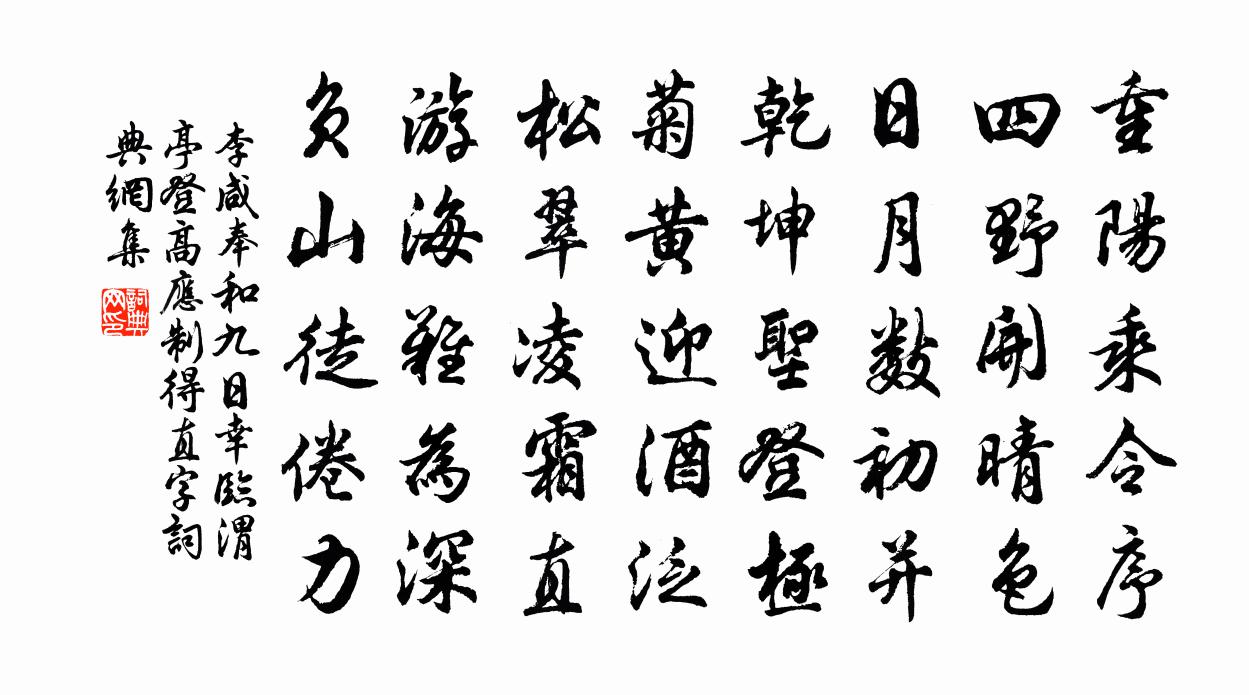 重陽乘令序
四野開晴色
日月數初并
乾坤聖登極
菊黃迎酒泛
松翠凌霜直
游海難為深
負山徒倦力
李咸奉和九日幸臨渭
亭登高應制得直字詞
典網集
詞典網印